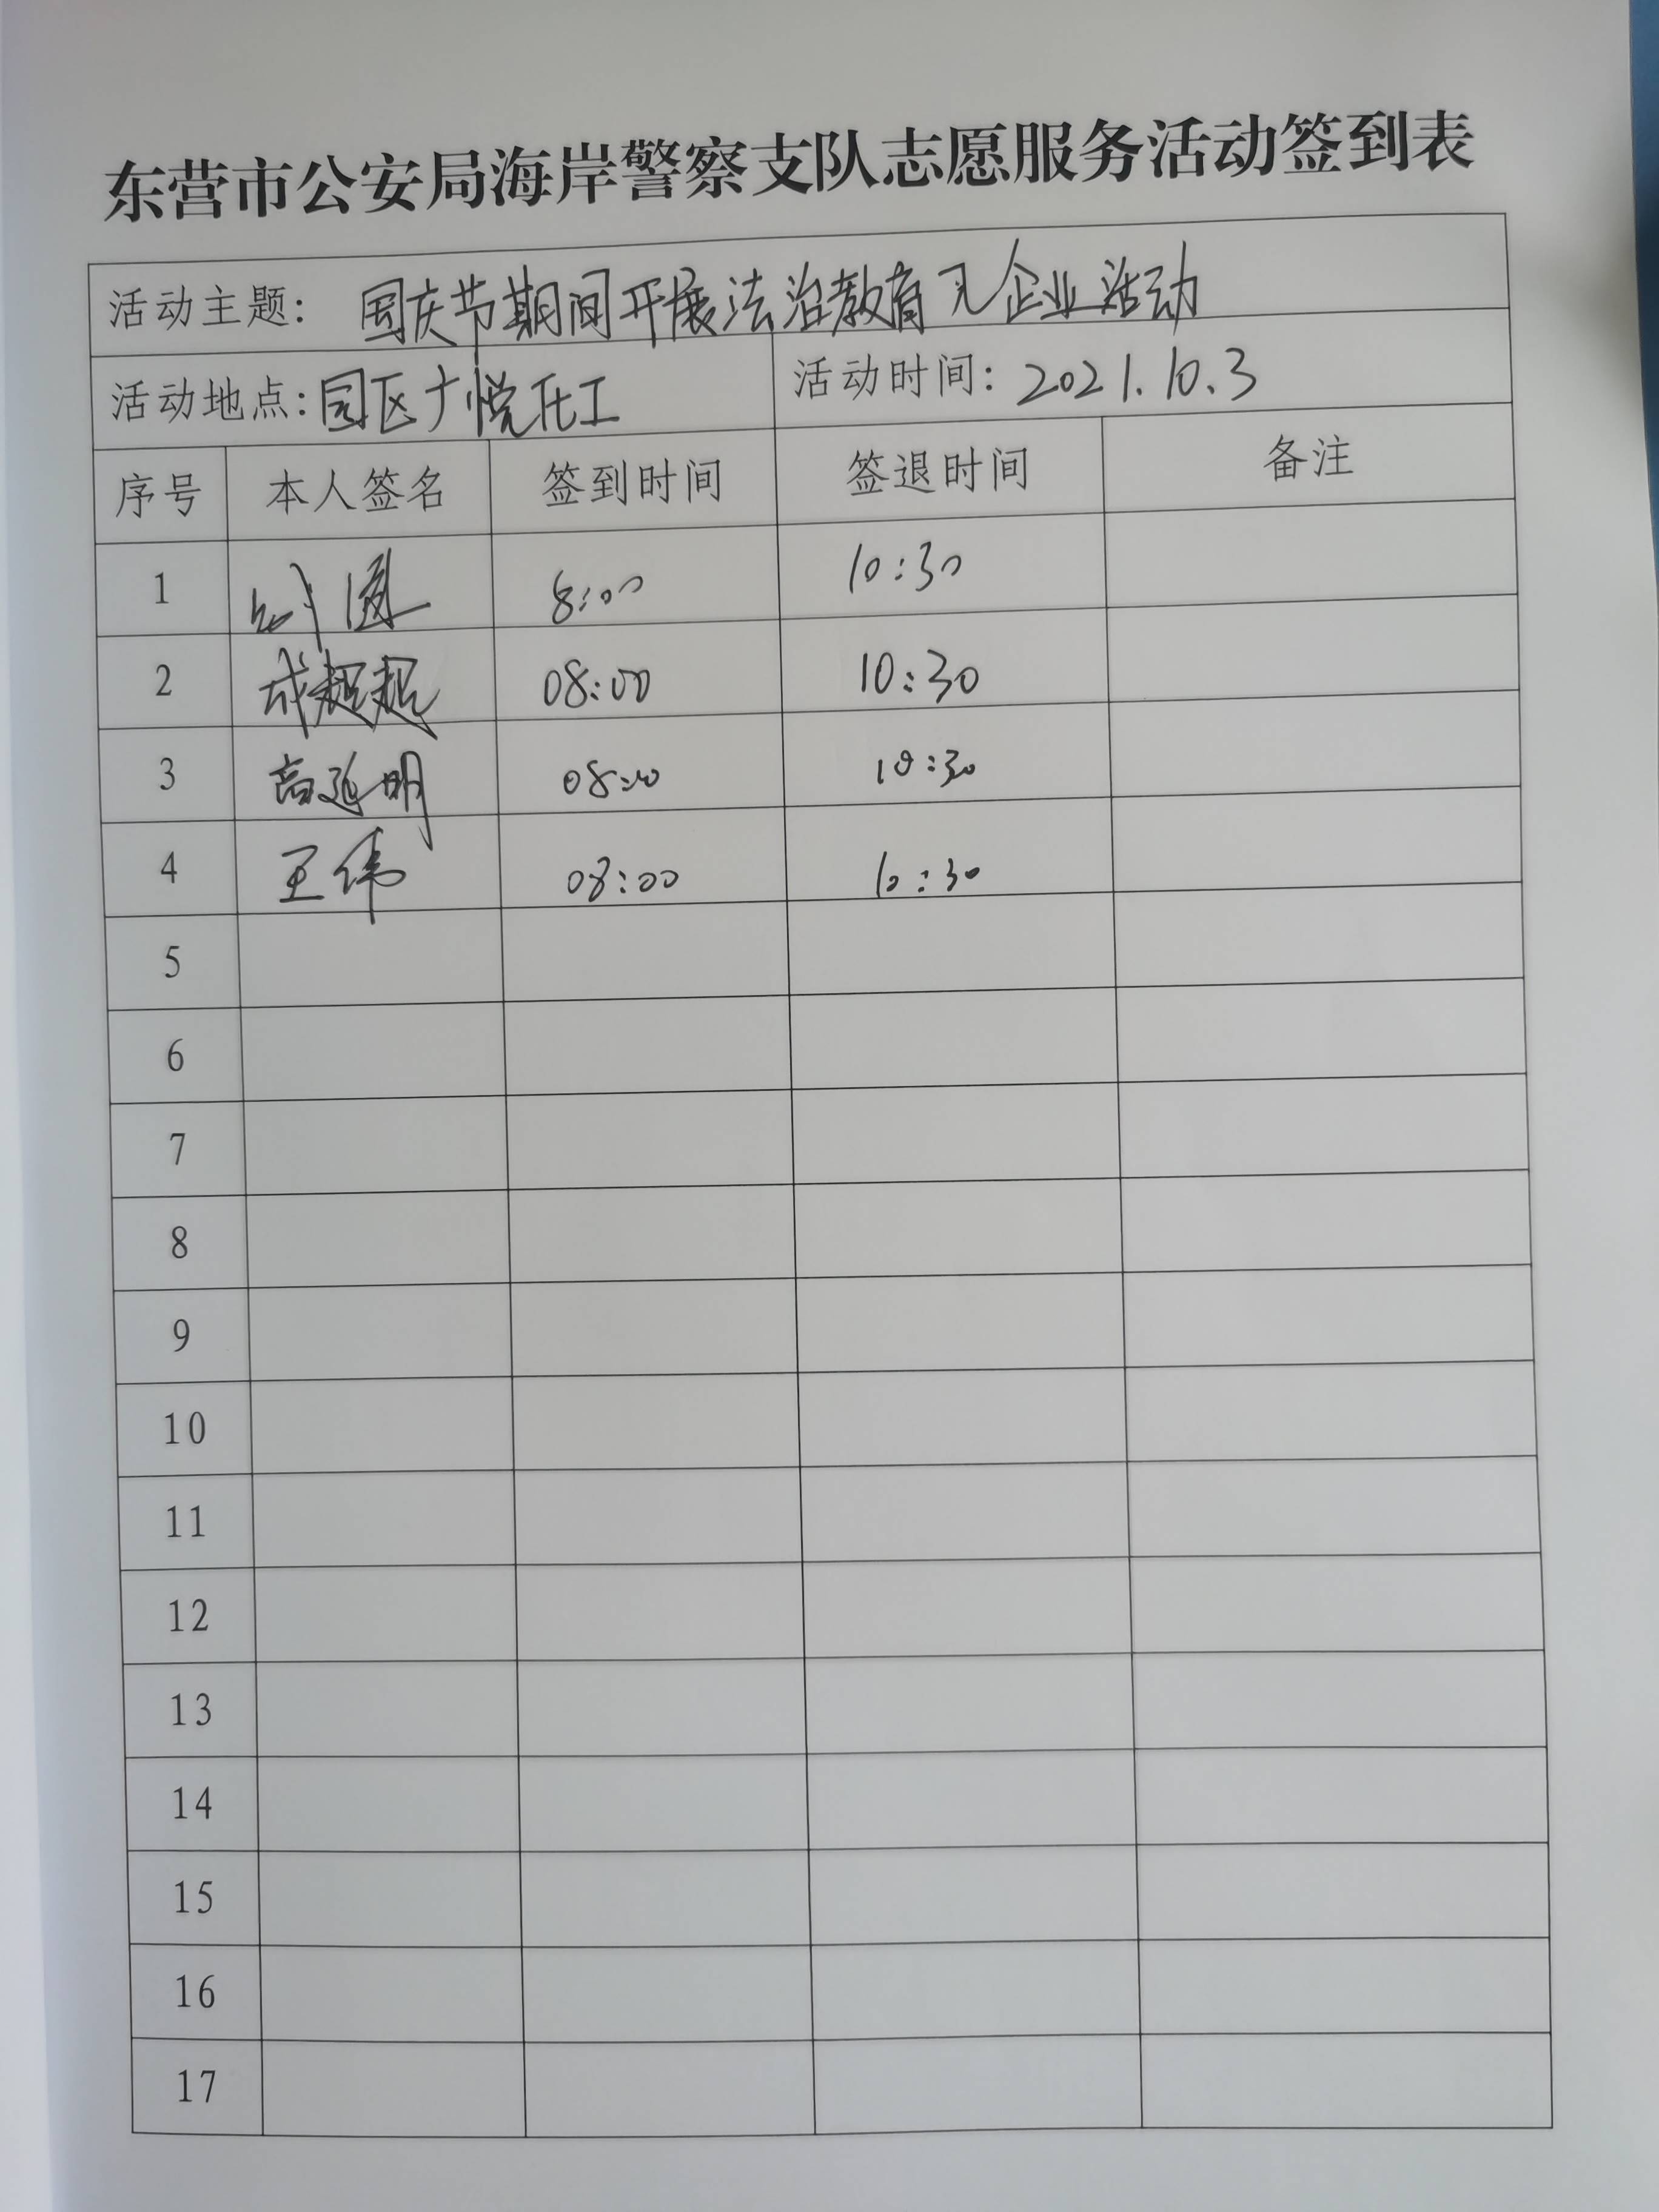 东营市公安局海岸警察支队志愿服务活动签到表
活动主题: 国庆节期间开展法治教育进企业活动
活动地点: 园区广悦化工 活动时间: 2021.10.3
序号 本人签名 签到时间 签退时间 备注
1 刘通 8:00 10:30
2 成超超 08:00 10:30
3 高延明 08:00 10:30
4 王伟 08:00 10:30
5
6
7
8
9
10
11
12
13
14
15
16
17